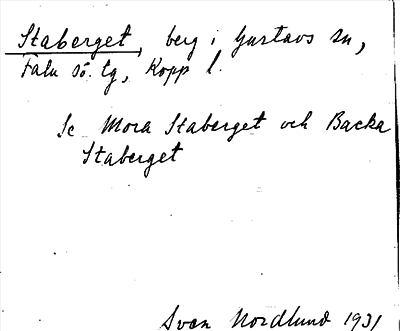 Staberget, berg i Gustavs sn,
Falu sö. tg, Kopp l.
Se Mora Staberget och Backa
Staberget
Sven Nordlund 1931